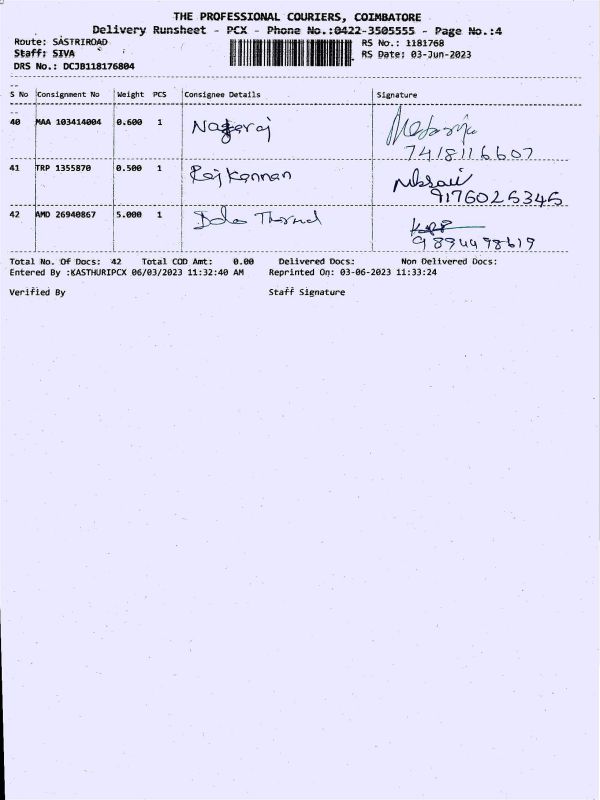 THE PROFESSIONAL COURIERS, COIMBATORE
Delivery Runsheet - PCX - Phone No.:0422-3505555 - Page No.:4
Route: SASTRIROAD RS No.: 1181768
Staff: SIVA RS Date: 03-Jun-2023
DRS No.: DCJB118176804
S No Consignment No Weight PCS Consignee Details Signature
40 MAA 103414004 0.600 1 Nagaraj
7418116607
41 TRP 1355870 0.500 1 Raj Kannan
9176025345
42 AMD 26940867 5.000 1
9894498619
Total No. Of Docs: 42 Total COD Amt: 0.00 Delivered Docs: Non Delivered Docs:
Entered By :KASTHURIPCX 06/03/2023 11:32:40 AM Reprinted On: 03-06-2023 11:33:24
Verified By Staff Signature